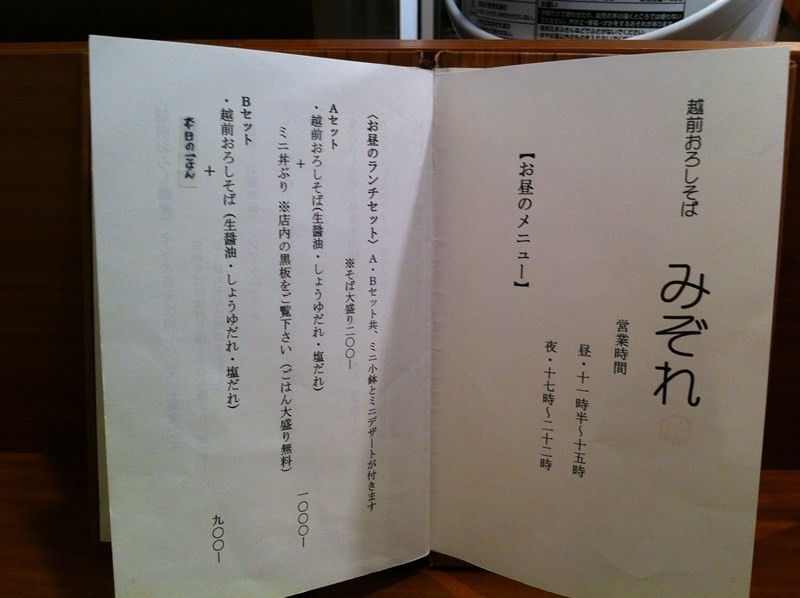 越前おろしそば
みぞれ
営業時間
昼・十一時半～十五時
夜・十七時～二十二時
【お昼のメニュー】
〈お昼のランチセット〉 A・Bセット共、ミニ小鉢とミニデザートが付きます
※そば大盛り二〇〇ー
Aセット
・越前おろしそば(生醤油・しょうゆだれ・塩だれ)
＋
ミニ丼ぶり ※店内の黒板をご覧下さい (ごはん大盛り無料)
一〇〇〇ー
Bセット
・越前おろしそば (生醤油・しょうゆだれ・塩だれ)
＋
本日のごはん
九〇〇ー